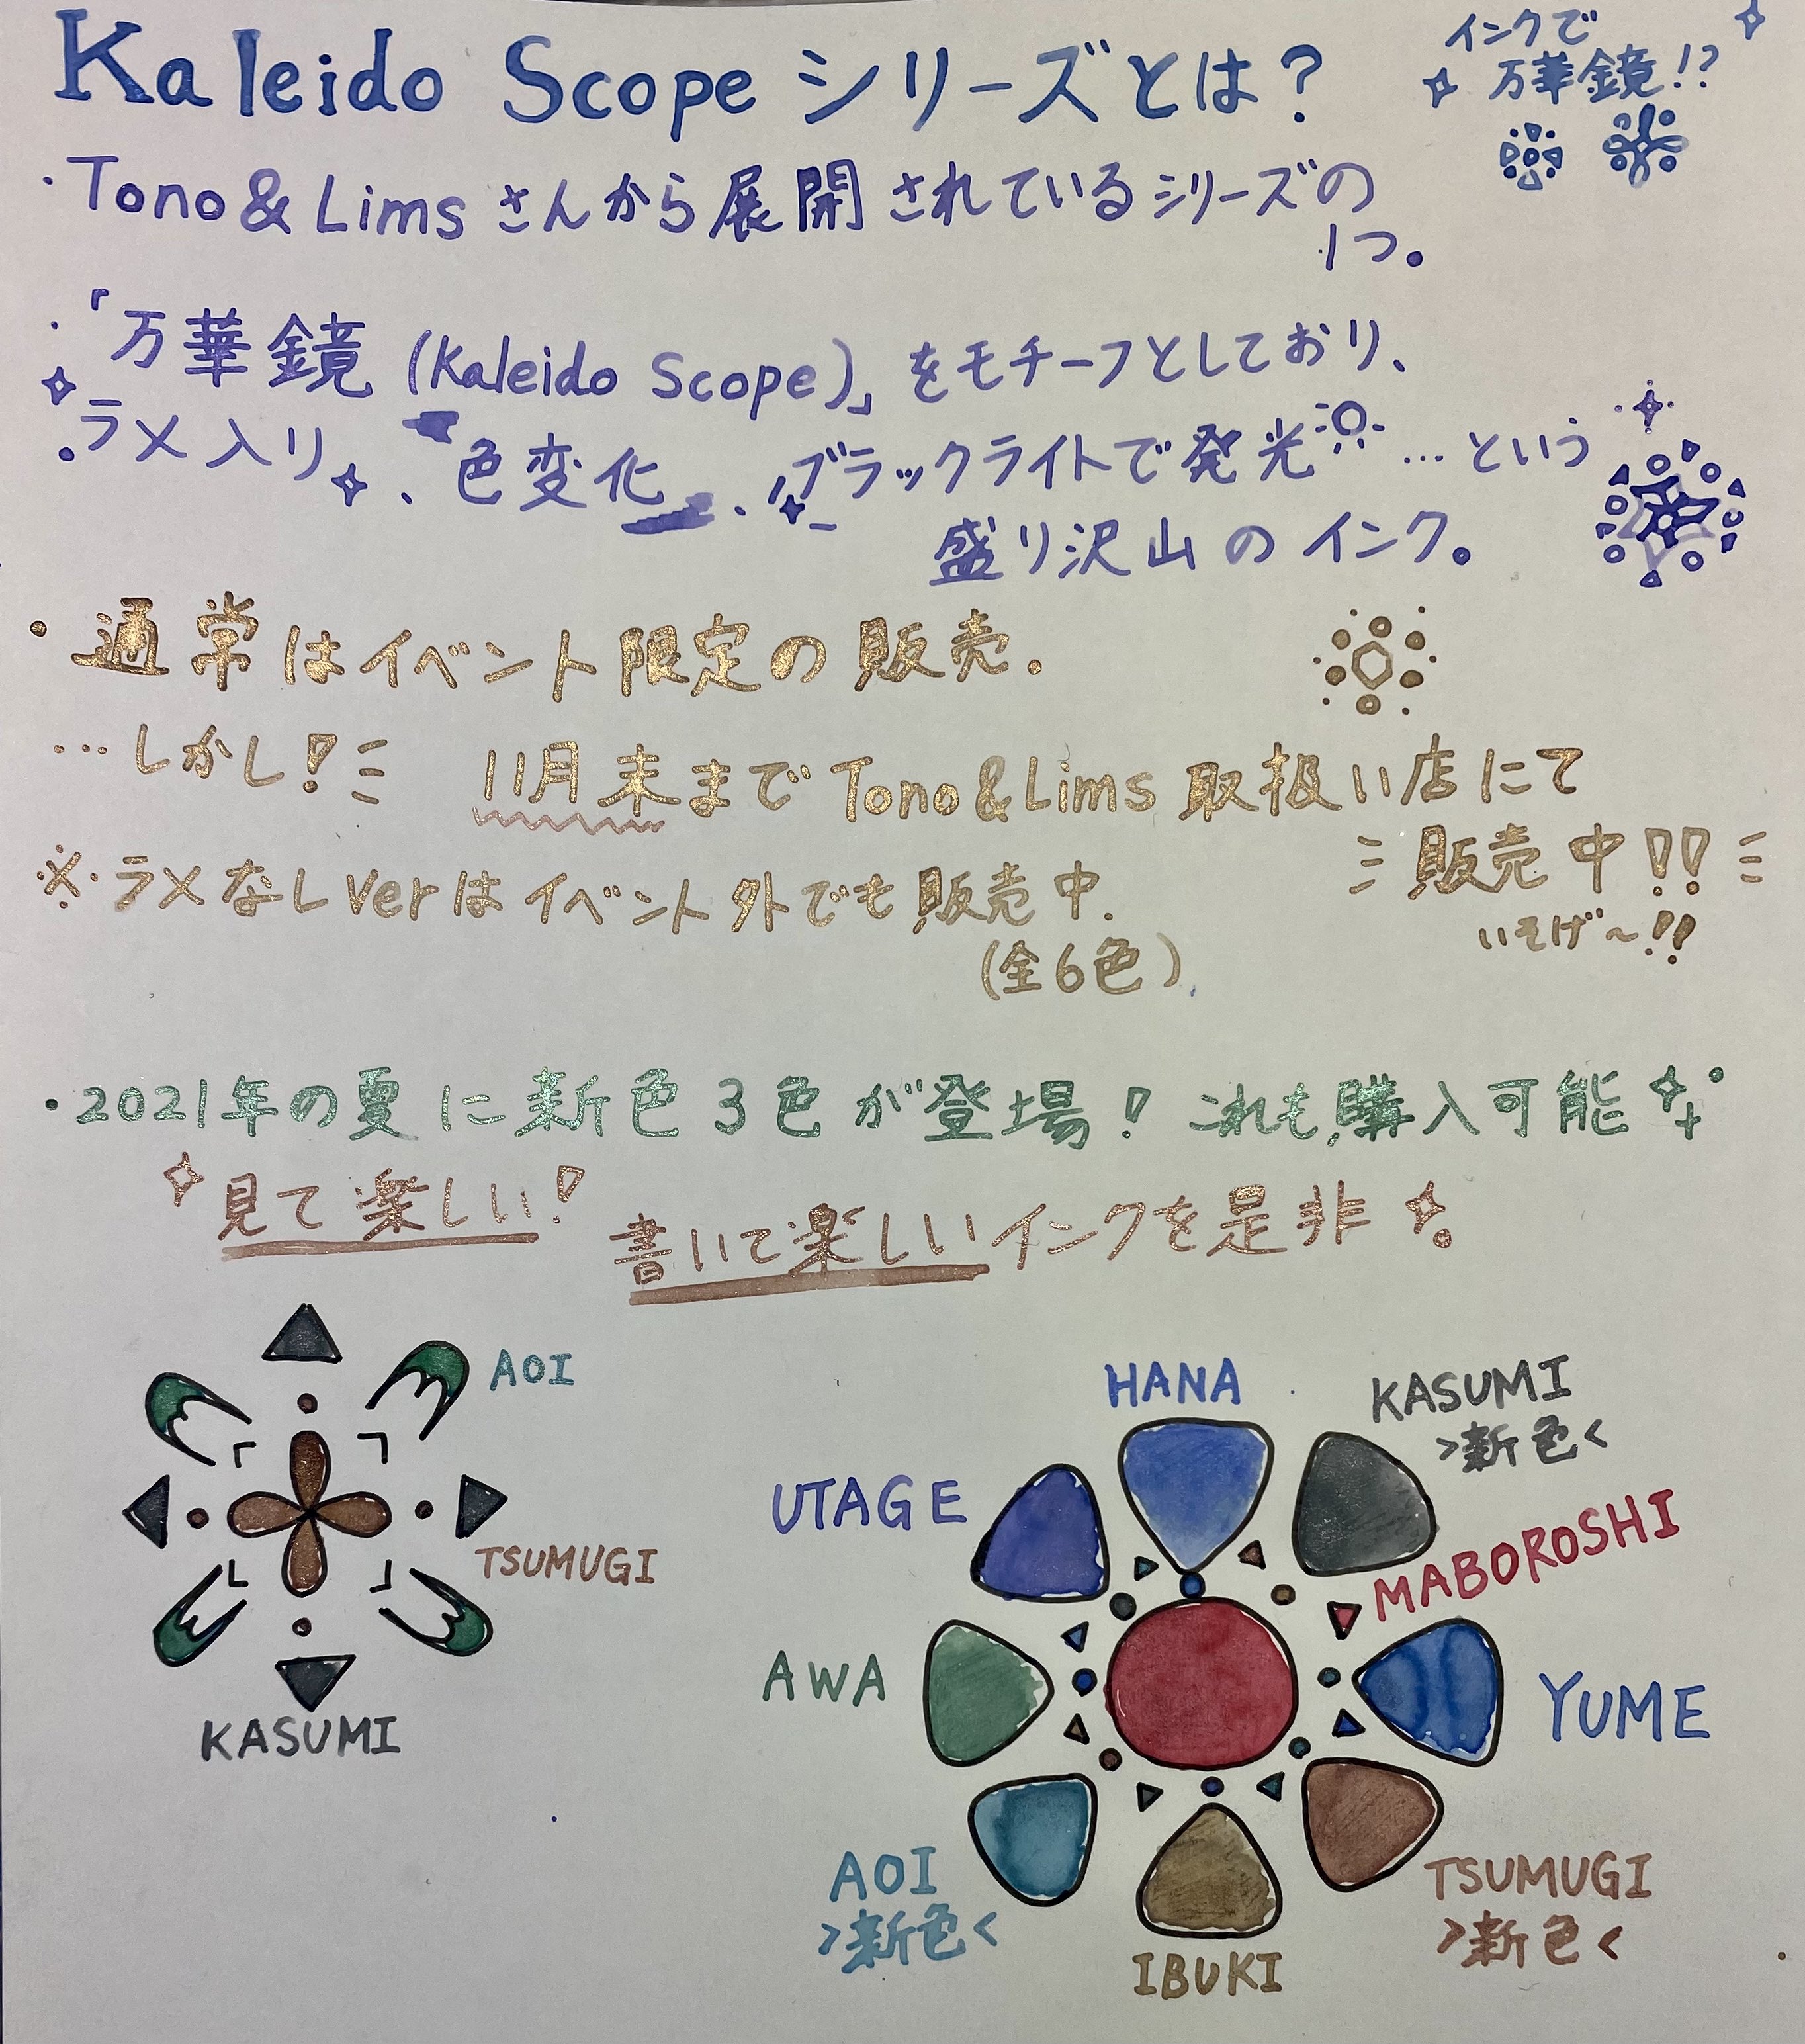 Kaleido Scope シリーズとは？
インクで
万華鏡!?
・Tono&Lims さんから展開されているシリーズの
1つ。
・「万華鏡 (Kaleido Scope)」をモチーフとしており、
ラメ入り、色変化、ブラックライトで発光…という
盛り沢山のインク。
・通常はイベント限定の販売.
…しかし! 11月末までTono&Lims取扱い店にて
販売中!!
いそげ〜!!
※ラメなしverはイベント外でも販売中.
(全6色)
・2021年の夏に新色3色が登場! これも購入可能
見て楽しい!
書いて楽しいインクを是非
AOI
TSUMUGI
KASUMI
HANA
KASUMI
>新色<
UTAGE
MABOROSHI
AWA
YUME
AOI
>新色<
TSUMUGI
>新色<
IBUKI